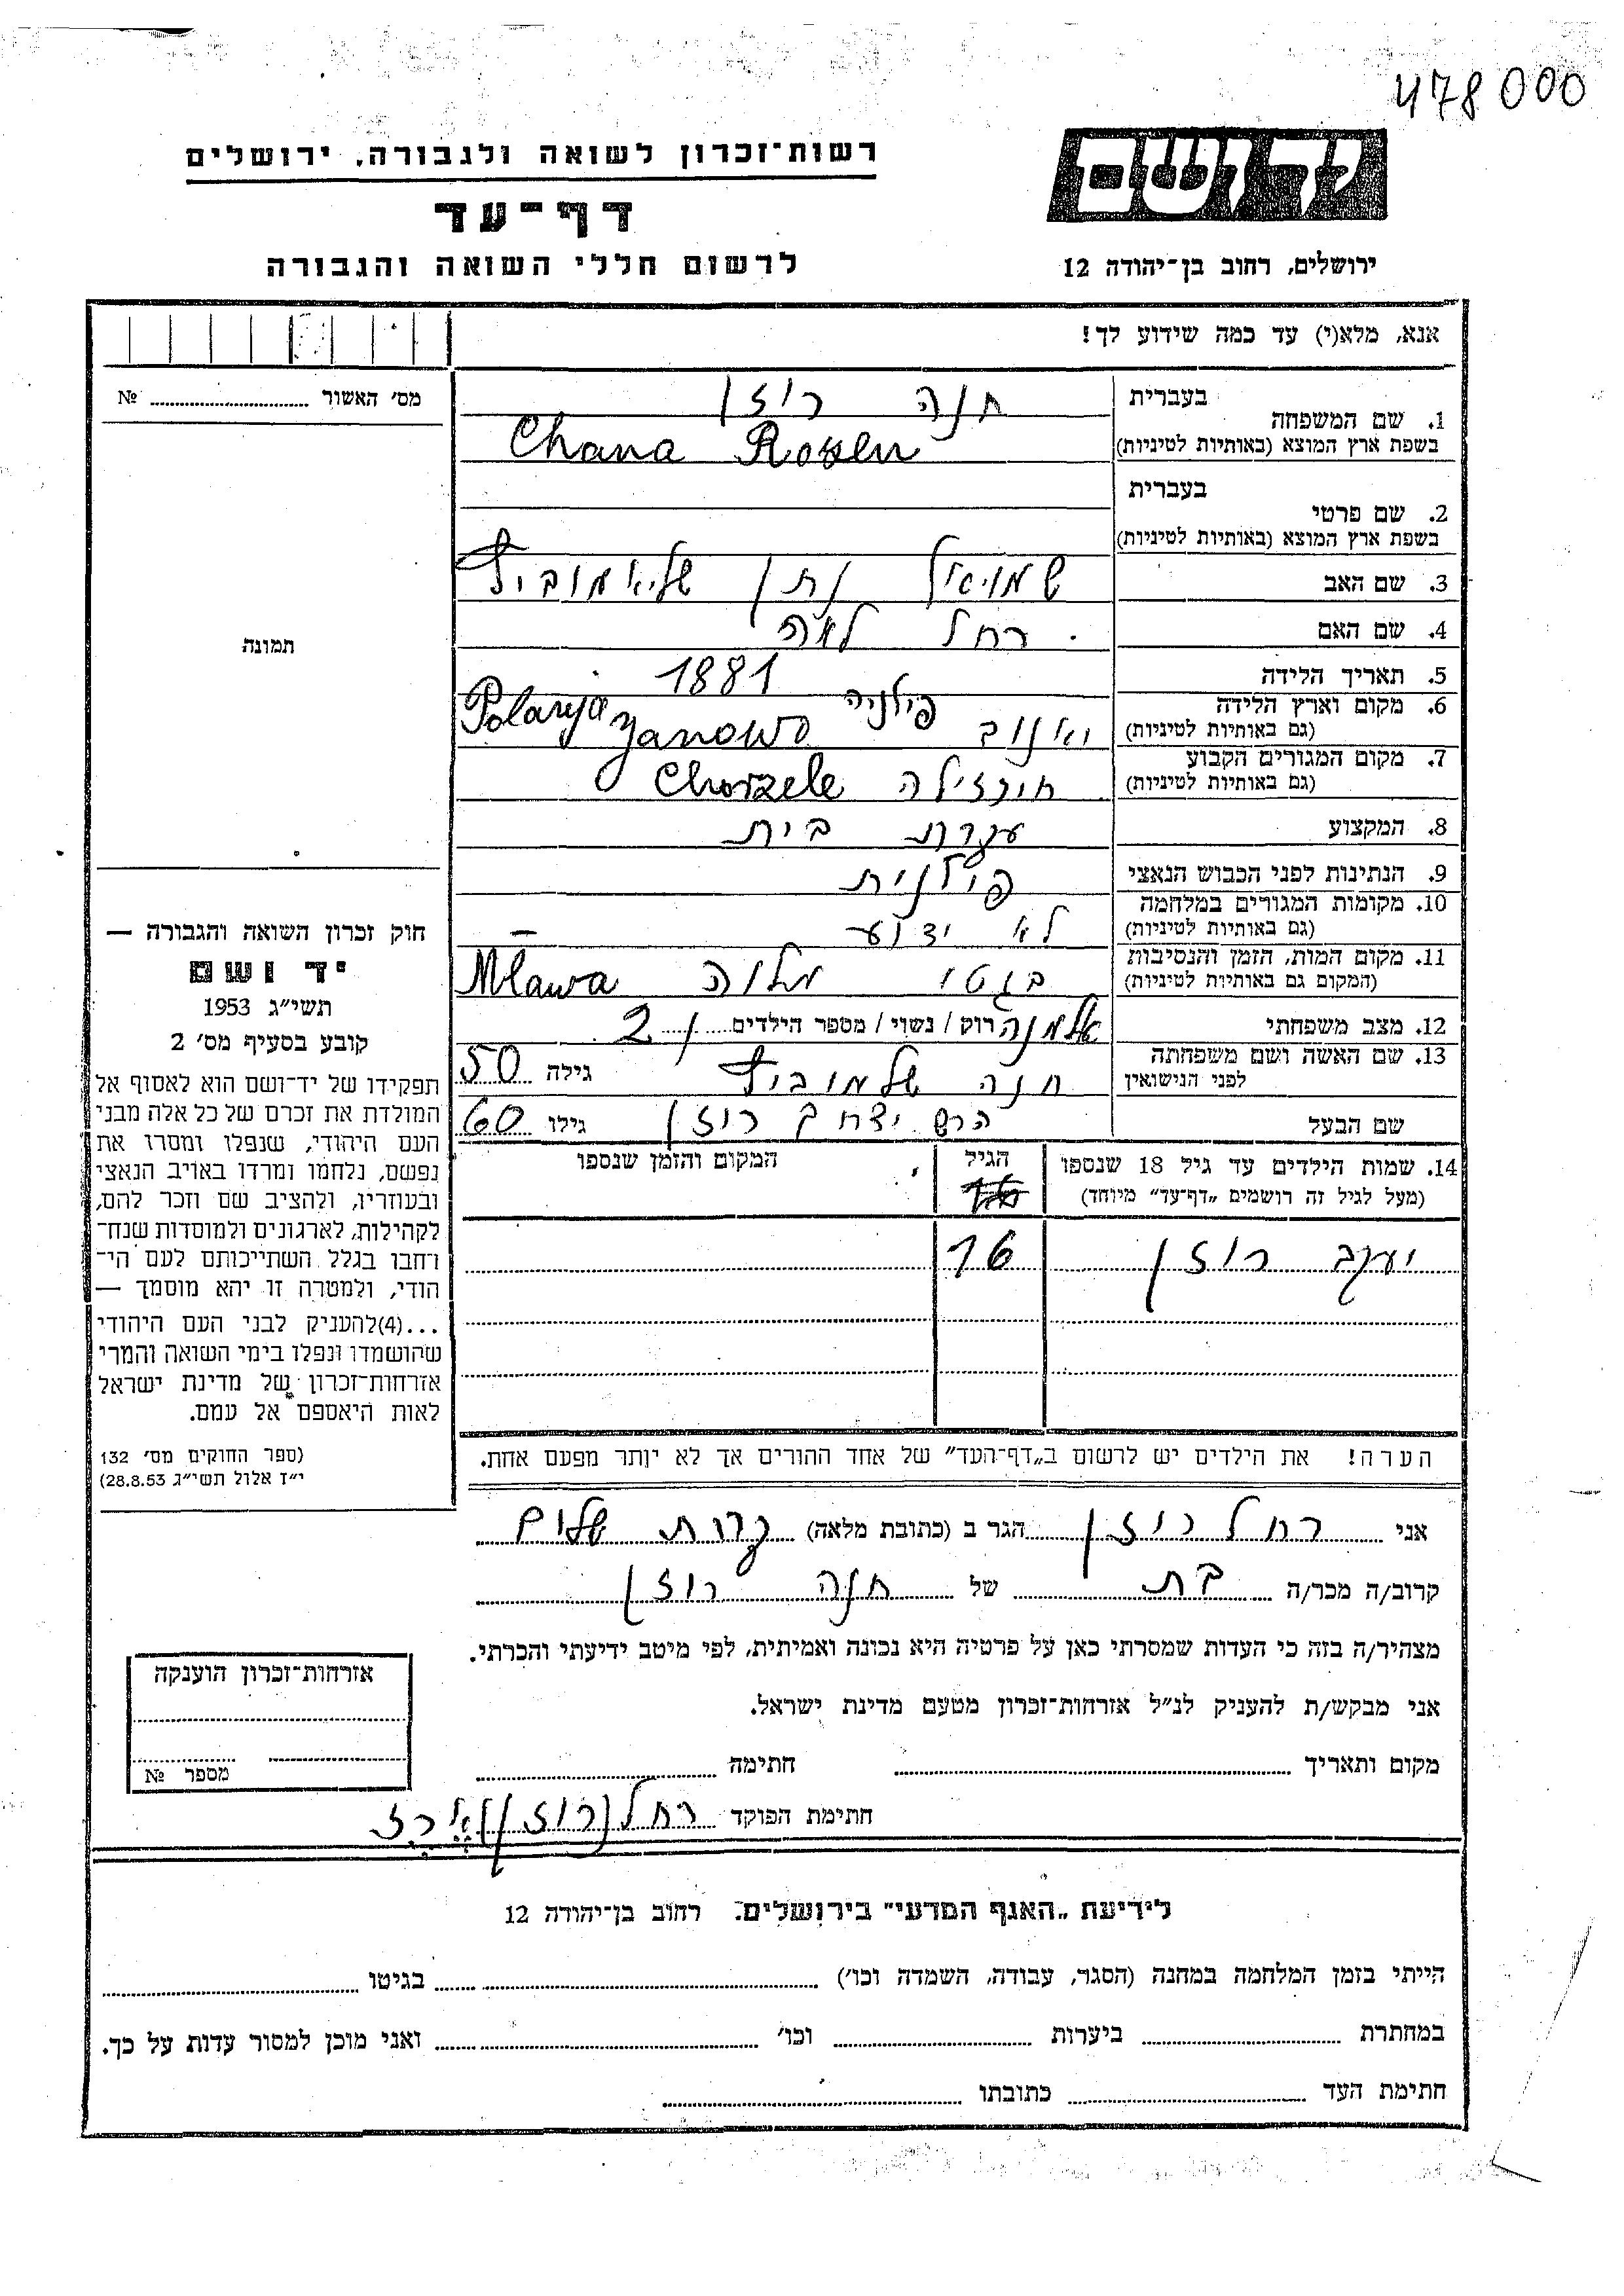 478000
יד ושם
רשות־זכרון לשואה ולגבורה, ירושלים
דף־עד
לרשום חללי השואה והגבורה
ירושלים, רחוב בן־יהודה 12
אנא, מלא(י) עד כמה שידוע לך!
מס׳ האשור № 
בעברית חנה רוזן
1. שם המשפחה
בשפת ארץ המוצא (באותיות לטיניות) Chana Rosen
בעברית
2. שם פרטי
בשפת ארץ המוצא (באותיות לטיניות)
3. שם האב שמואל נתן
4. שם האם רחל לאה
5. תאריך הלידה 1881
6. מקום וארץ הלידה פולניה
(גם באותיות לטיניות) Yanowo
7. מקום המגורים הקבוע
(גם באותיות לטיניות) חורזילה Chorzele
8. המקצוע עקרת בית
9. הנתינות לפני הכבוש הנאצי פולנית
10. מקומות המגורים במלחמה
(גם באותיות לטיניות) לא ידוע –
11. מקום המות, הזמן והנסיבות
(המקום גם באותיות לטיניות) בגטו מלוה Mlawa
12. מצב משפחתי אלמנה רוק / נשוי / מספר הילדים 2
13. שם האשה ושם משפחתה
לפני הנישואין חנה שלמוביץ גילה 50
שם הבעל הרש יצחק רוזן גילו 60
14. שמות הילדים עד גיל 18 שנספו הגיל המקום והזמן שנספו
(מעל לגיל זה רושמים „דף־עד״ מיוחד)
יעקב רוזן 16
הערה! את הילדים יש לרשום ב„דף־העד״ של אחד ההורים אך לא יותר מפעם אחת.
תמונה
חוק זכרון השואה והגבורה —
יד ושם
תשי״ג 1953
קובע בסעיף מס׳ 2
תפקידו של יד־ושם הוא לאסוף אל
המולדת את זכרם של כל אלה מבני
העם היהודי, שנפלו ומסרו את
נפשם, נלחמו ומרדו באויב הנאצי
ובעוזריו, ולהציב שם וזכר להם,
לקהילות, לארגונים ולמוסדות שנח־
רחבו בגלל השתייכותם לעם הי־
הודי, ולמטרה זו יהא מוסמך —
...(4)להעניק לבני העם היהודי
שהושמדו ונפלו בימי השואה והמרי
אזרחות־זכרון של מדינת ישראל
לאות היאספם אל עמם.
(ספר החוקים מס׳ 132
י״ז אלול תשי״ג 28.8.53)
אני רחל רוזן הגר ב (כתובת מלאה) שלום
קרוב/ה מכר/ה בת של חנה רוזן
מצהיר/ה בזה כי העדות שמסרתי כאן על פרטיה היא נכונה ואמיתית, לפי מיטב ידיעתי והכרתי.
אני מבקש/ת להעניק לנ״ל אזרחות־זכרון מטעם מדינת ישראל.
מקום ותאריך חתימה
חתימת הפוקד רחל (רוזן)
אזרחות־זכרון הוענקה
מספר №
לידיעת „האגף המדעי״ בירושלים. רחוב בן־יהודה 12
הייתי בזמן המלחמה במחנה (הסגר, עבודה, השמדה וכו׳) בגיטו
במחתרת ביערות וכו׳ ואני מוכן למסור עדות על כך.
חתימת העד כתובתו